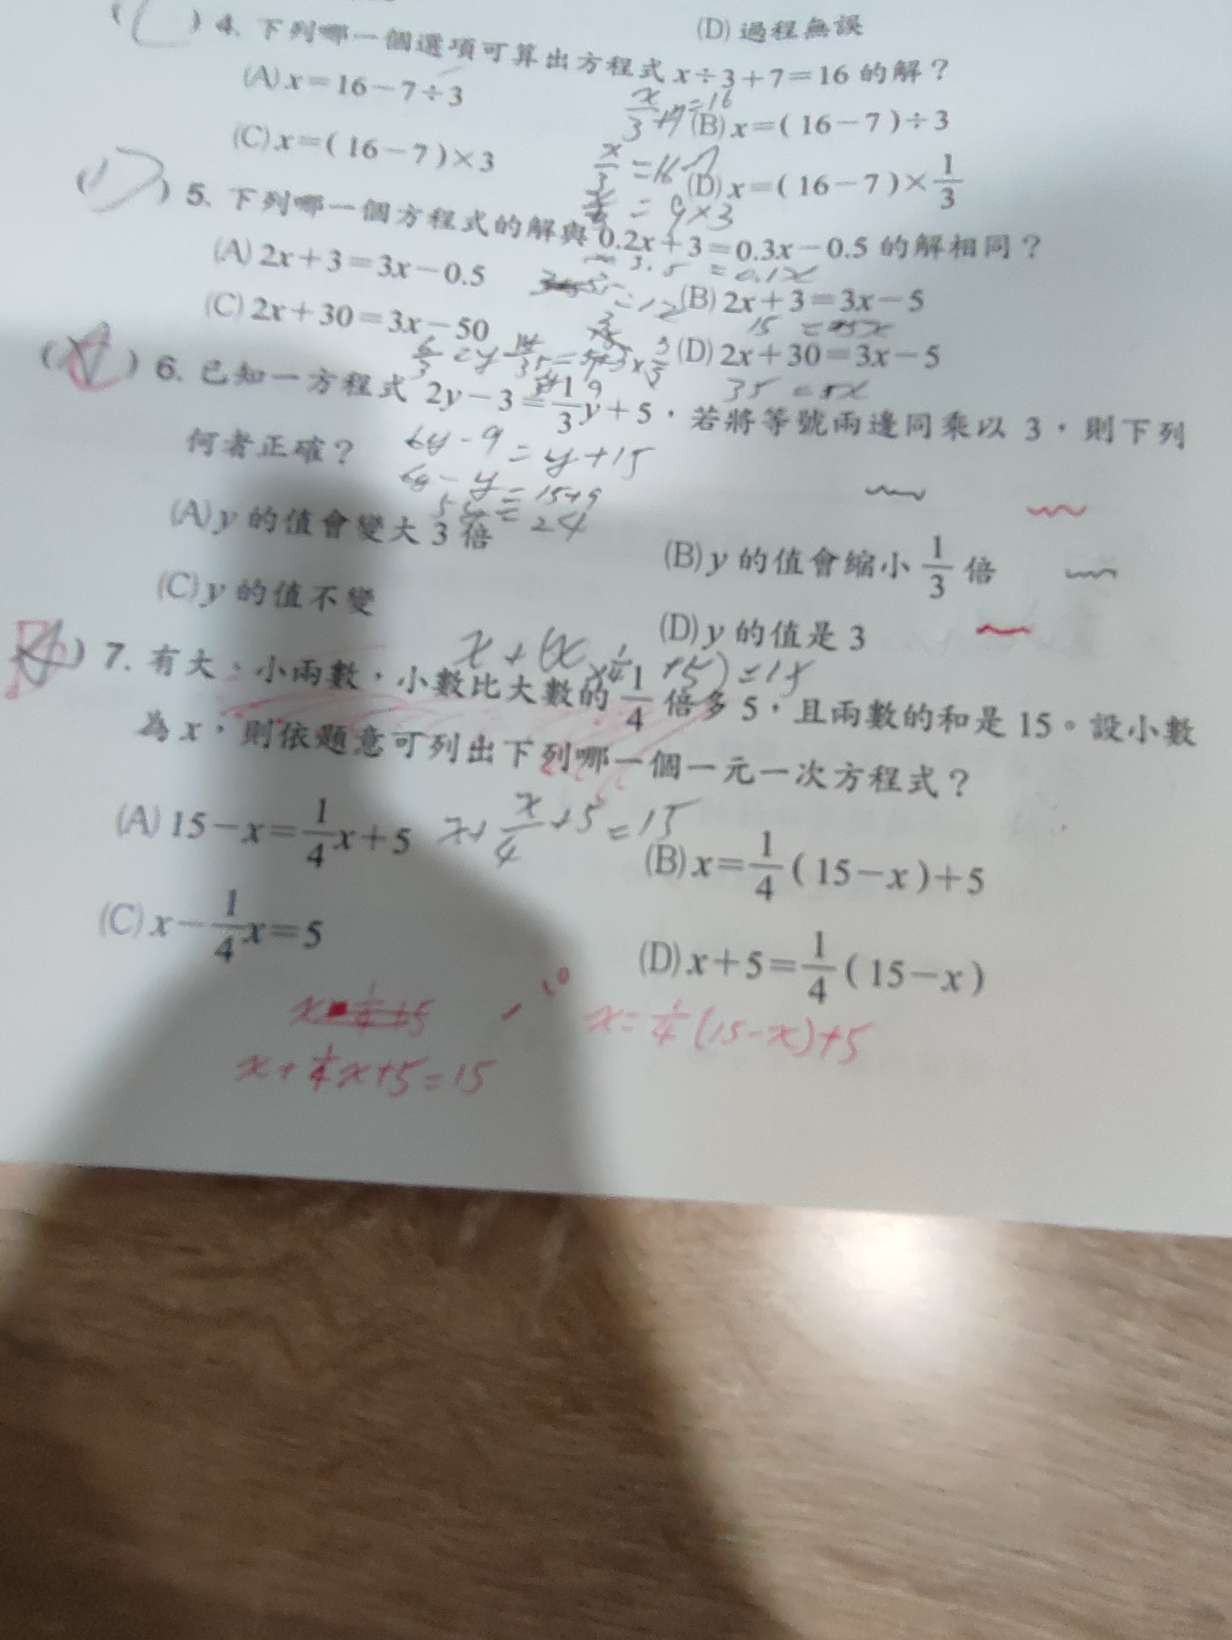 (D) 過程無誤
4. 下列哪一個選項可算出方程式 x÷3+7=16 的解？
(A) x=16-7÷3
(B) x=(16-7)÷3
(C) x=(16-7)×3
(D) x=(16-7)×1/3
x/3+7=16
x/3=16-7
=9×3
5. 下列哪一個方程式的解與 0.2x+3=0.3x-0.5 的解相同？
3.5=0.1x
(A) 2x+3=3x-0.5
(B) 2x+3=3x-5
(C) 2x+30=3x-50
(D) 2x+30=3x-5
6. 已知一方程式 2y-3=1/3y+5，若將等號兩邊同乘以 3，則下列
何者正確？
6y-9=y+15
6y-y=15+9
5y=24
(A) y 的值會變大 3 倍
(B) y 的值會縮小 1/3 倍
(C) y 的值不變
(D) y 的值是 3
7. 有大、小兩數，小數比大數的 1/4 倍多 5，且兩數的和是 15。設小數
為 x，則依題意可列出下列哪一個一元一次方程式？
x+(x×1/4+5)=15
(A) 15-x=1/4x+5
x+x/4+5=15
(B) x=1/4(15-x)+5
(C) x-1/4x=5
(D) x+5=1/4(15-x)
x=1/4(15-x)+5
x+1/4x+5=15